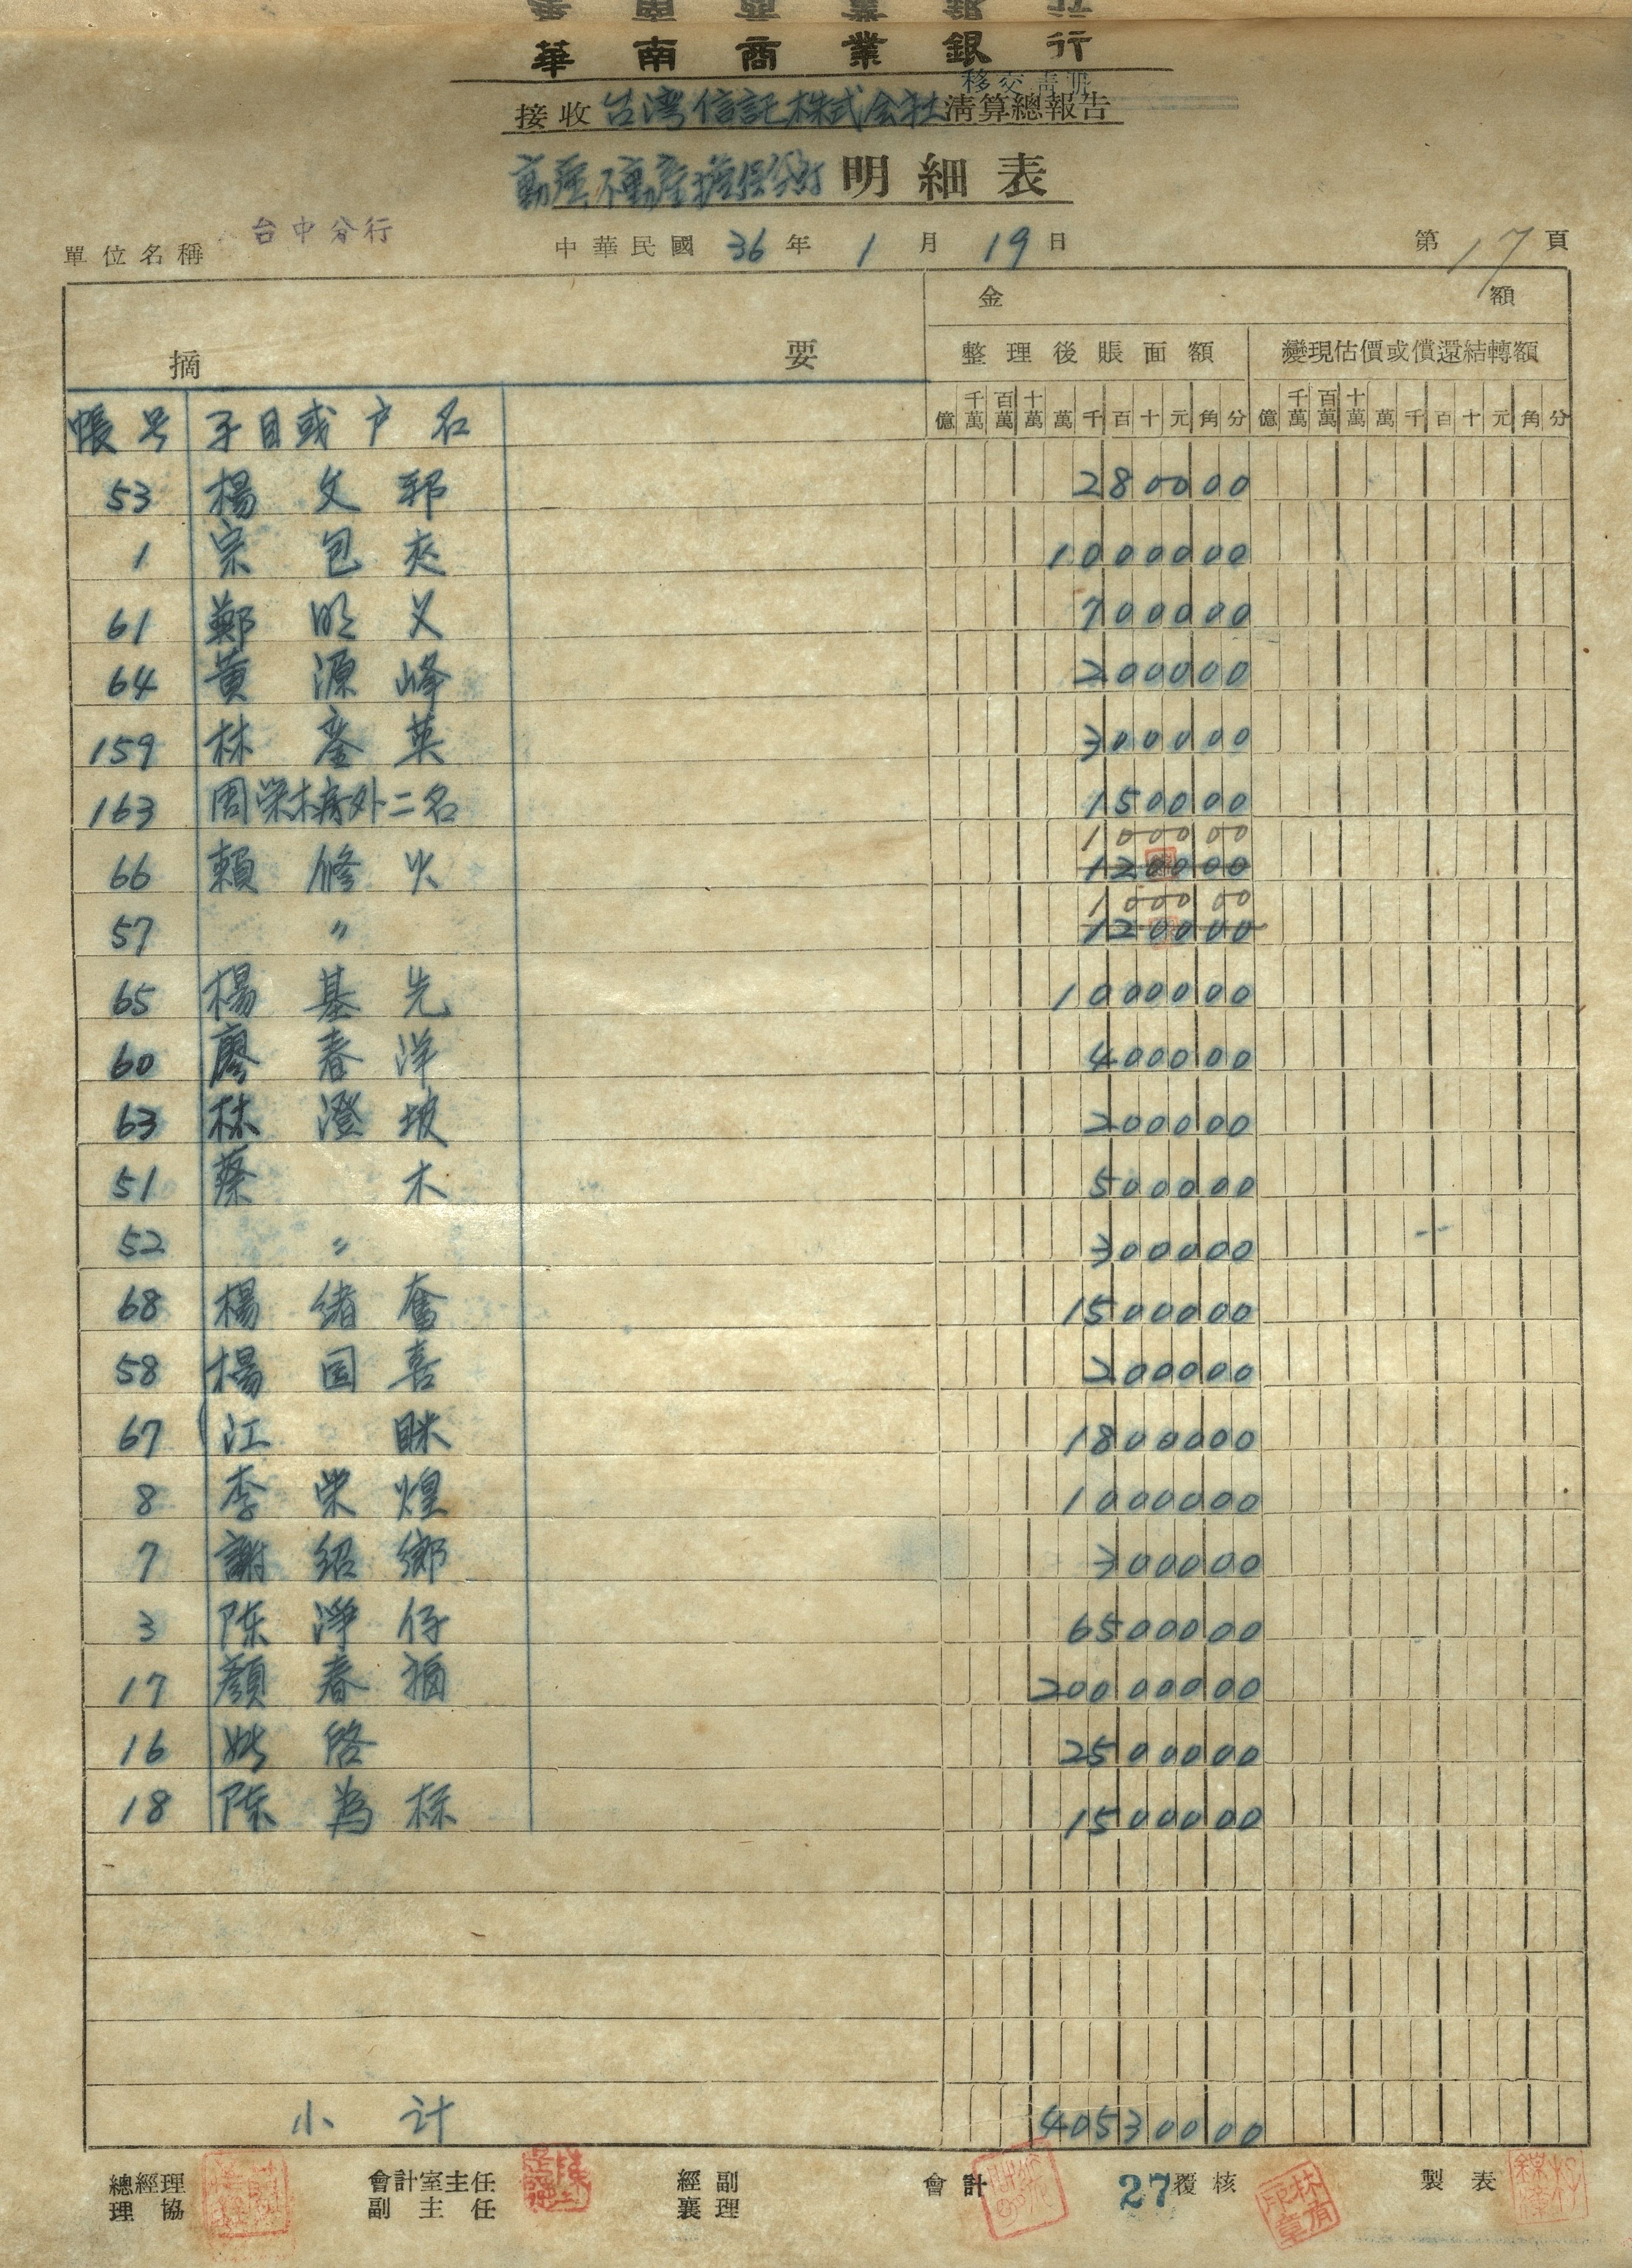 華南商業銀行
移交清冊
接收台湾信託株式会社清算總報告
明細表
單位名稱 台中分行 中華民國 36 年 1 月 19 日 第 17 頁
摘要 金額
整理後賬面額 變現估價或償還結轉額
億 千萬 百萬 十萬 萬 千 百 十 元 角 分 億 千萬 百萬 十萬 萬 千 百 十 元 角 分
帳号 子目或户名
53 楊文郭 280000
1 宗包 1000000
61 鄭明义 700000
64 黄源峰 200000
159 林 英 300000
163 周栄 外二名 150000
100000
66 賴修火 120000
100000
57 〃 120000
65 楊基先 1000000
60 廖春洋 400000
63 林澄坡 200000
51 蔡木 500000
52 〃 300000
68 楊緒奮 1500000
58 楊国喜 200000
67 江眯 1800000
8 李栄煌 1000000
7 謝紹鄉 300000
3 陈淨仔 6500000
17 顏春摘 20000000
16 姚啓 2500000
18 陈為标 1500000
小計 40530000
總經理 會計室主任 經副 會計 27 覆核 製表
協理 副主任 襄理